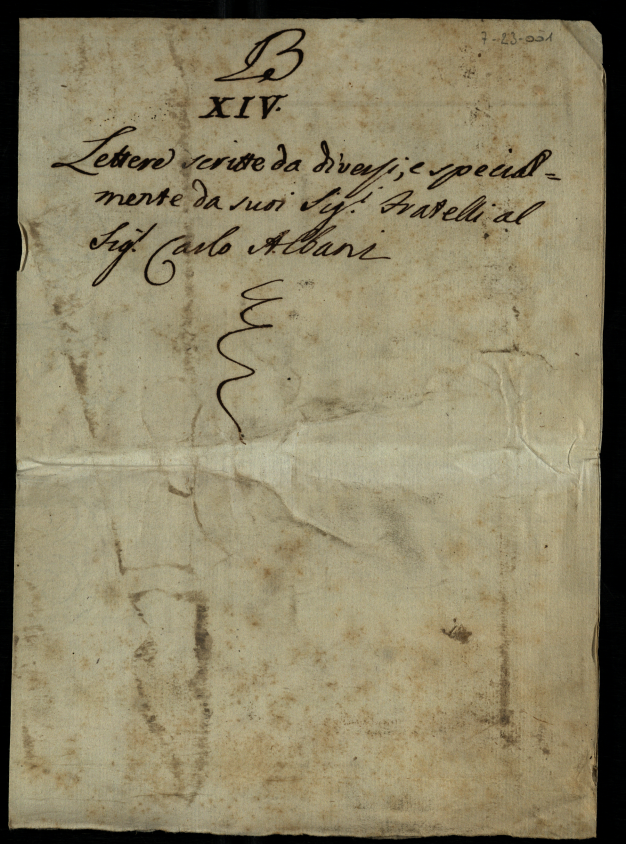 7-23-001
B
XIV.
Lettere scritte da diversi, e special=
mente da suoi Sig.i Fratelli al
Sig.r Carlo Albani